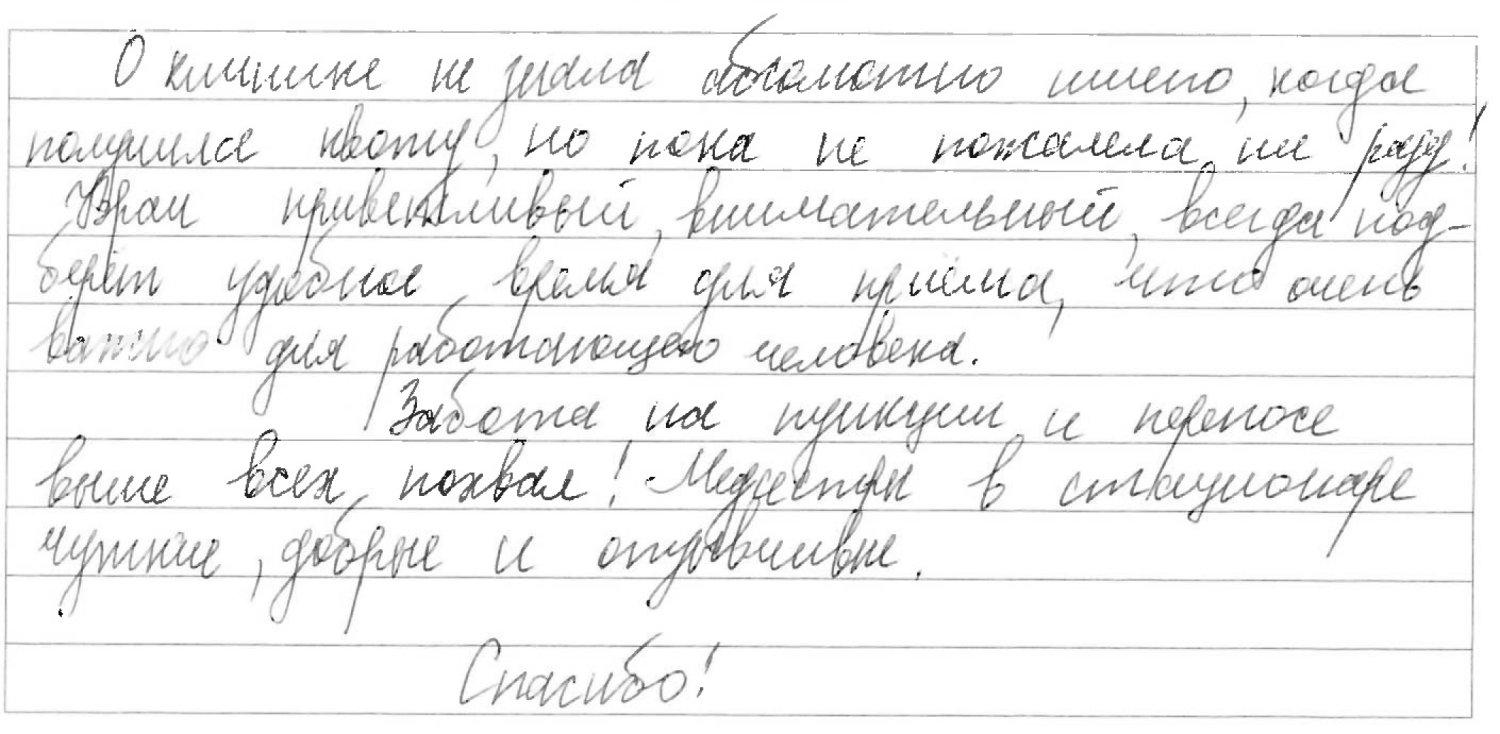 О клинике не знала абсолютно ничего, когда
получила квоту, но пока не пожалела ни разу!
Врач приветливый, внимательный, всегда под-
берёт удобное время для приёма, что очень
важно для работающего человека.
Забота на пункции и переносе
выше всех похвал! Медсестры в стационаре
чуткие, добрые и отзывчивые.
Спасибо!